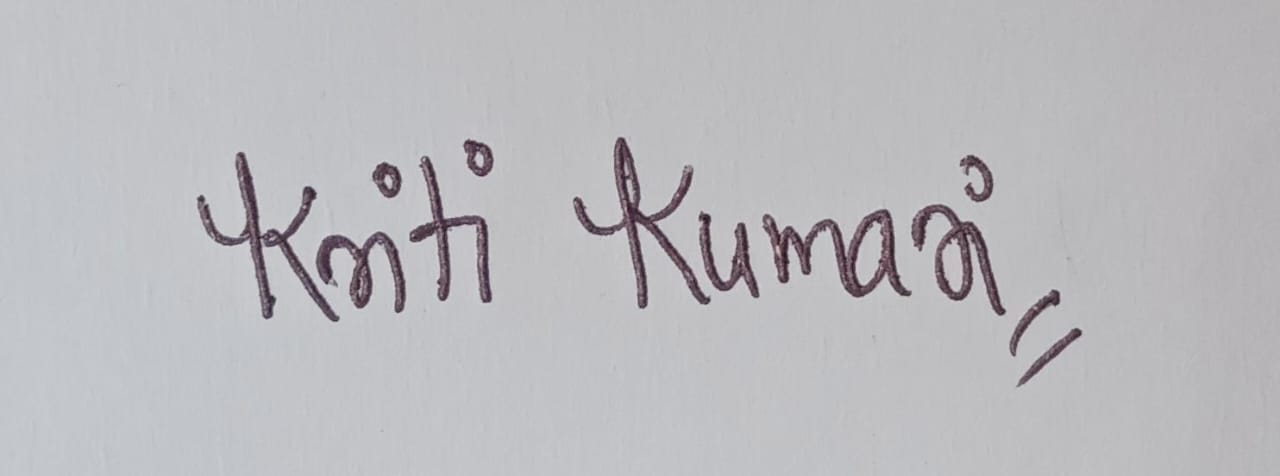 Kriti Kumari